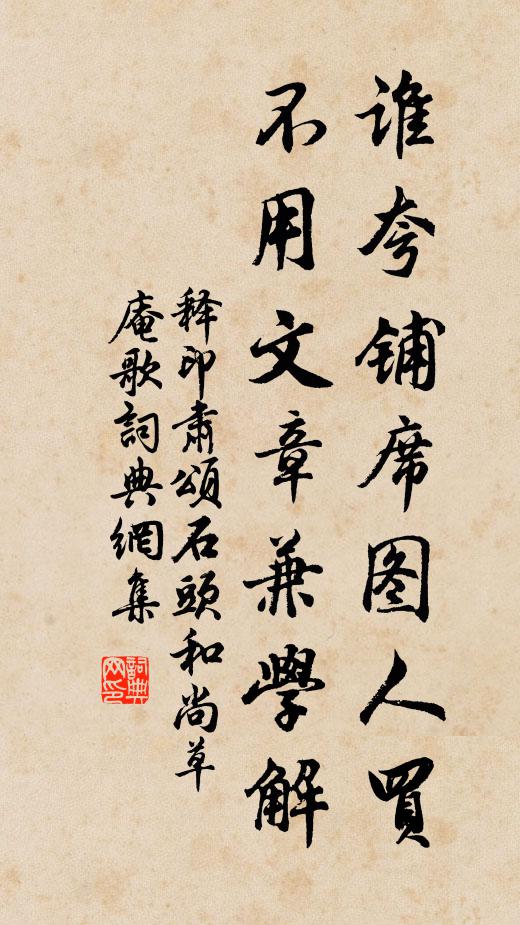 誰夸铺席图人買
不用文章兼學解
释印肅頌石頭和尚草
庵歌詞典網集
詞典网印